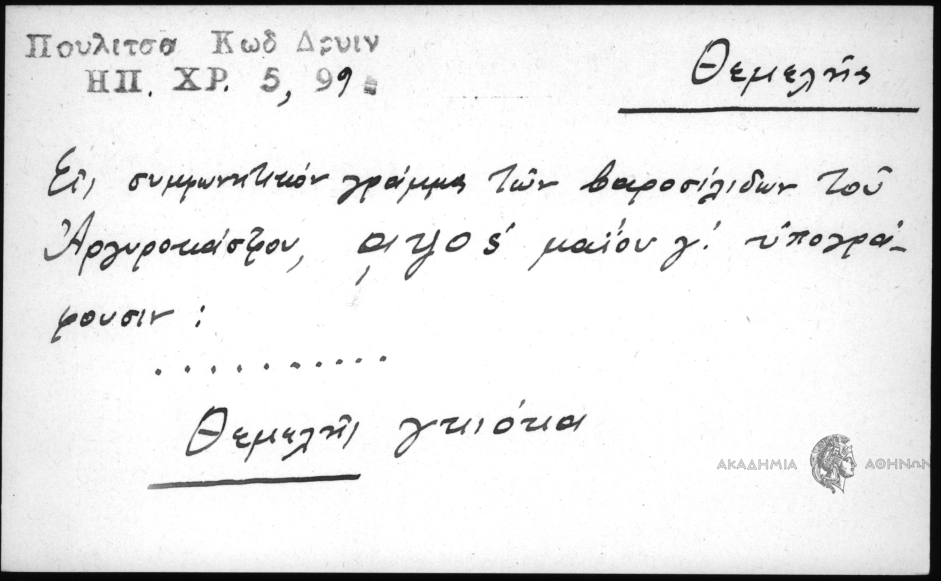 Πουλιτσα Κωδ Δρυιν
ΗΠ. ΧΡ. 5, 99
Θεμελῆς
Εἰς συμφωνητικόν γράμμα τῶν βαροσίλιδων τοῦ
Ἀργυροκάστρου, ͵αψος΄ μαΐου γ΄. ὑπογρά-
φουσιν :
. . . . . . . . . .
Θεμελῆς γκιόκα
ΑΚΑΔΗΜΙΑ ΑΘΗΝΩΝ